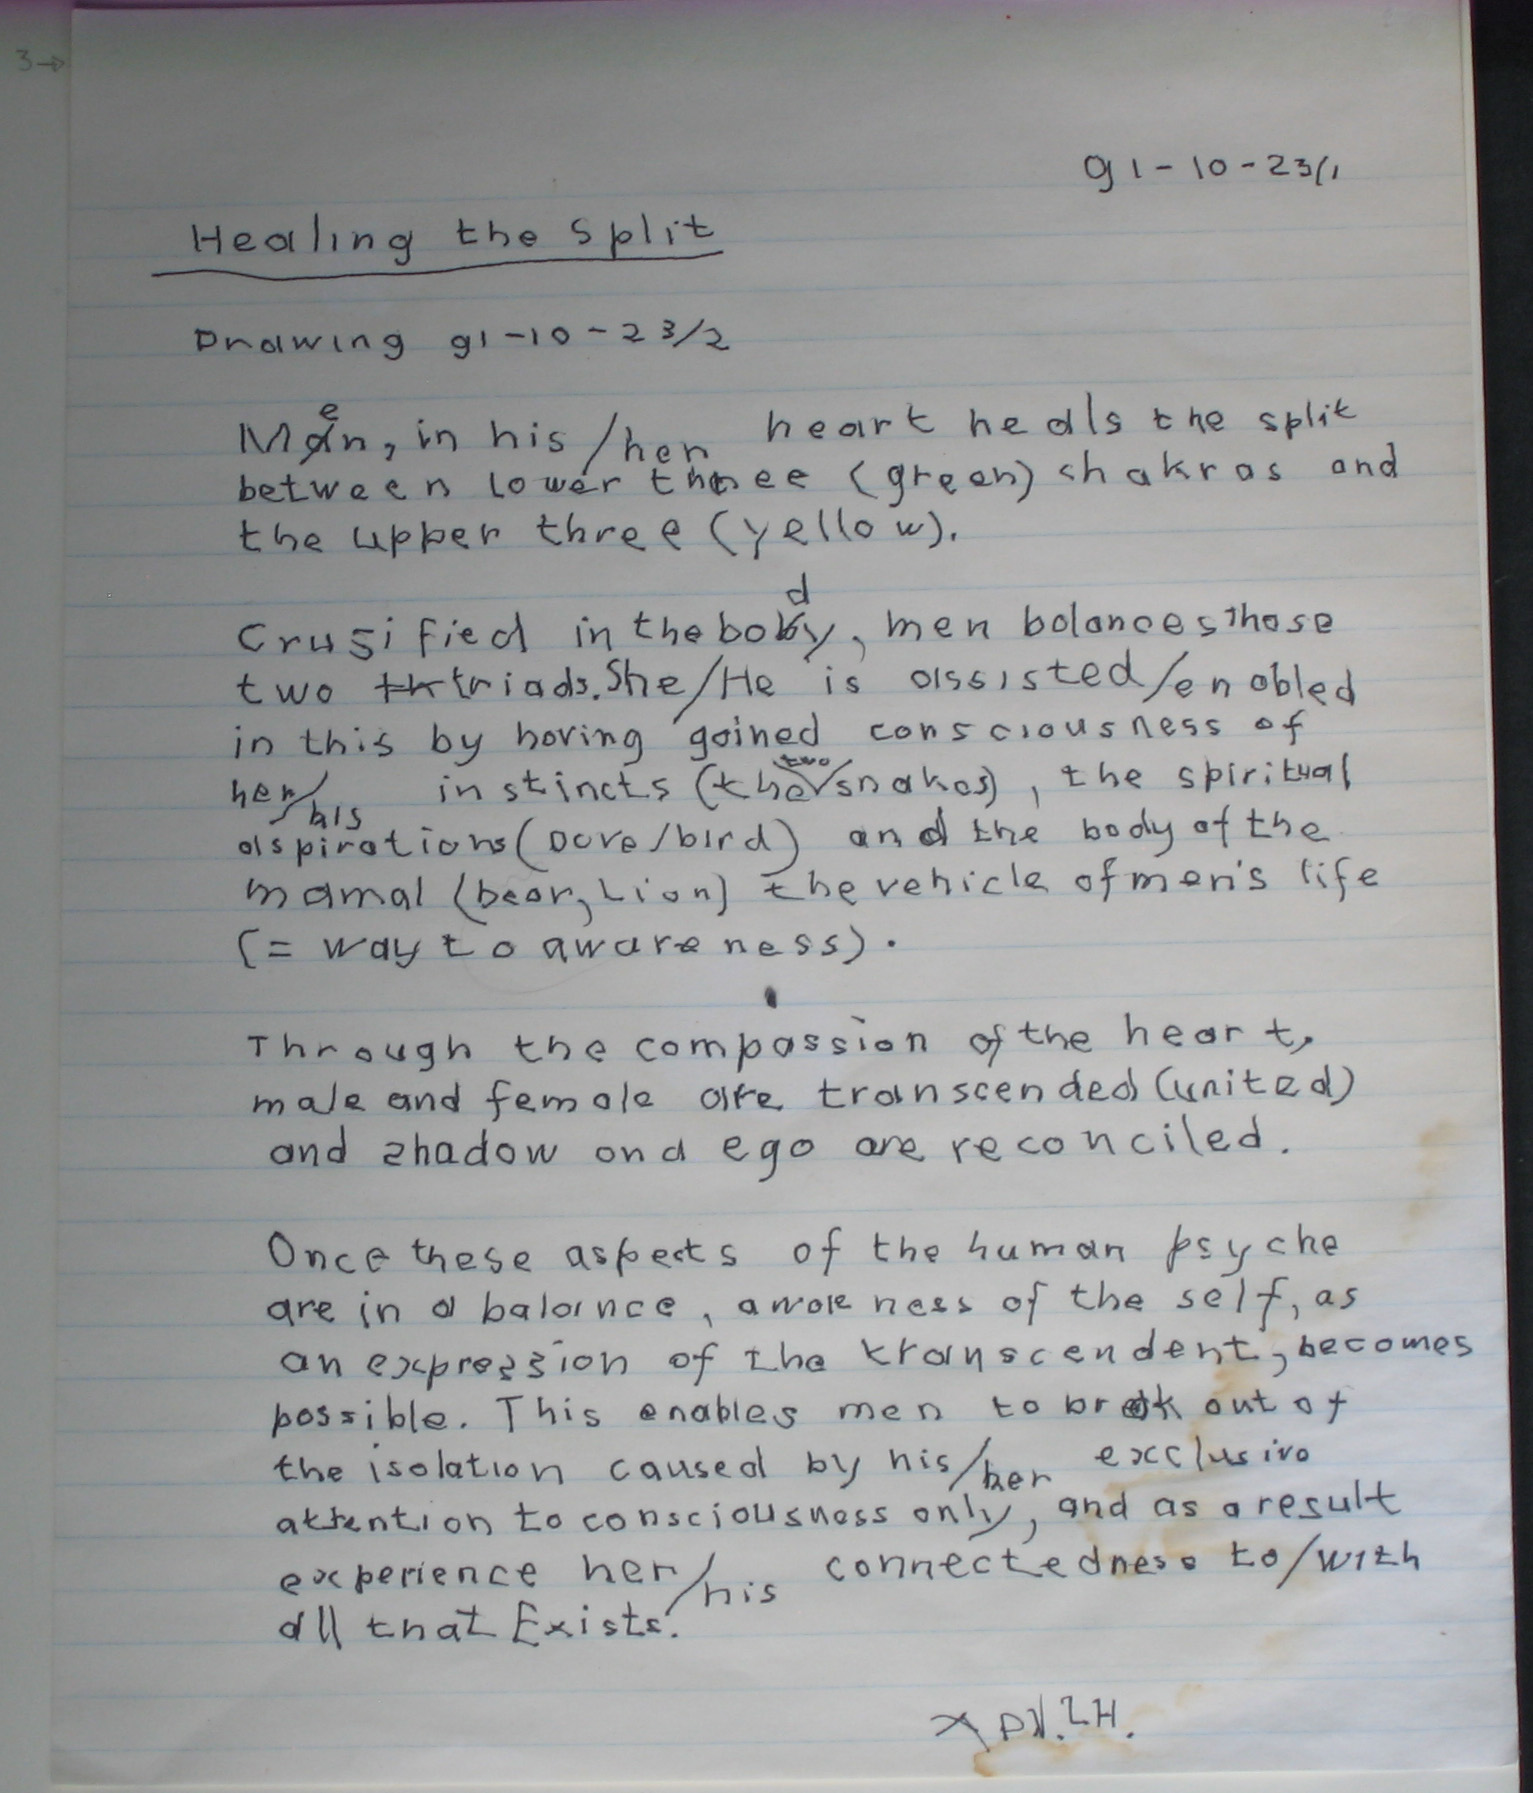 3→
91-10-23/1
Healing the Split
Drawing 91-10-23/2
Men, in his/her heart heals the split
between lower three (green) shakras and
the upper three (yellow).
Crusified in the body, men balances those
two triads. She/He is assisted/enabled
in this by having gained consciousness of
her/his instincts (the two snakes), the spiritual
aspirations (Dove/bird) and the body of the
mamal (bear, Lion) the vehicle of men's life
(= way to awareness).
Through the compassion of the heart,
male and female are transcended (united)
and shadow and ego are reconciled.
Once these aspects of the human psyche
are in a balance, awareness of the self, as
an expression of the transcendent, becomes
possible. This enables men to break out of
the isolation caused by his/her exclusive
attention to consciousness only, and as a result
experience her/his connectedness to/with
all that Exists.